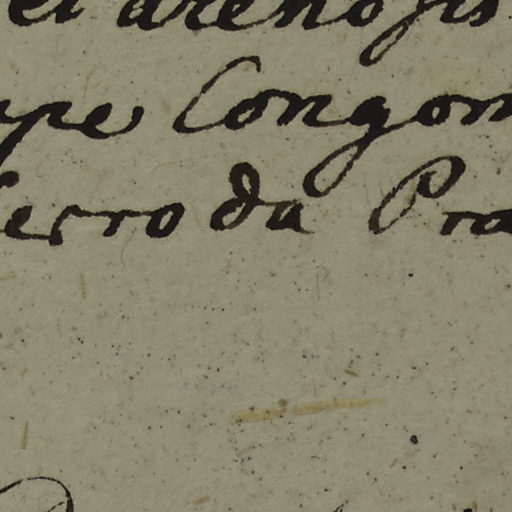 et arenosis
ppe Congon
Serro da Pra